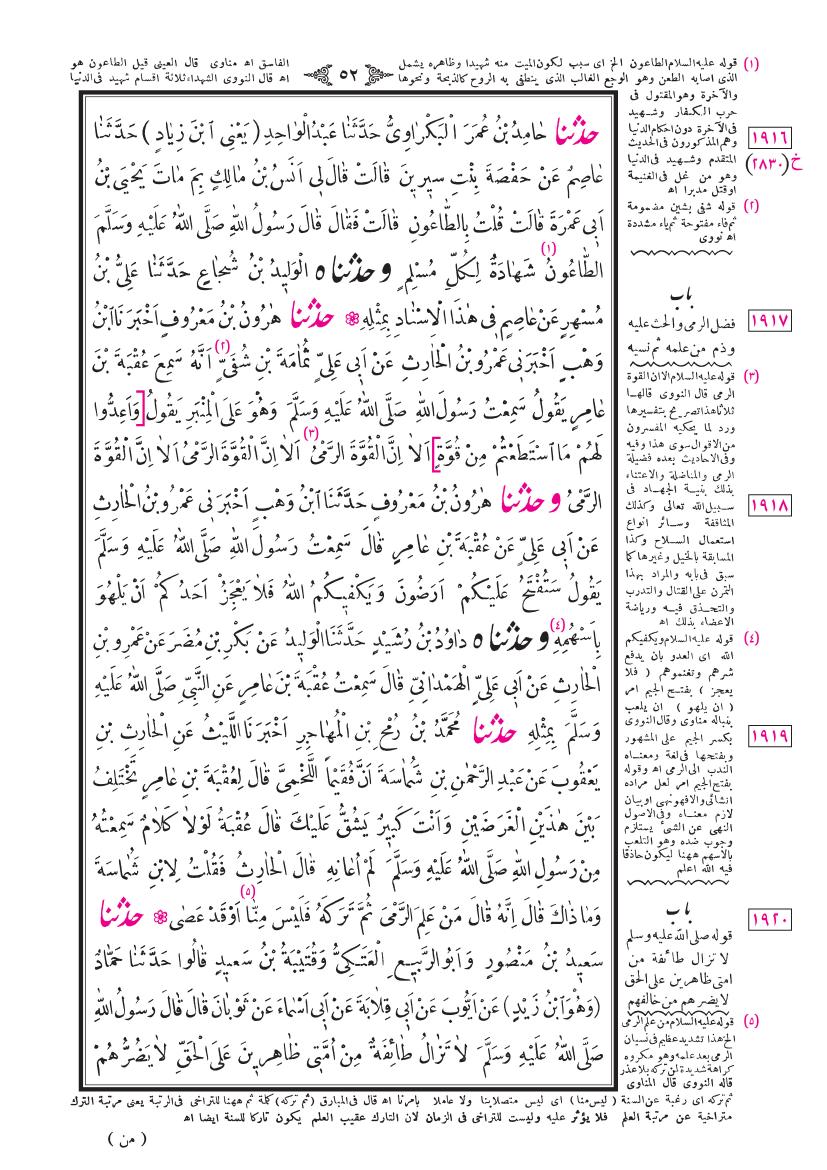 (١) قوله عليه السلام الطاعون الخ اى سبب لكون الميت منه شهيدا وظاهره يشمل الفاسق اه مناوى قال العينى قيل الطاعون هو
الذى اصابه الطعن وهو الوجع الغالب الذى ينطفى به الروح كالذبحة ونحوها اه قال النووى الشهداء ثلاثة اقسام شهيد فى الدنيا
٥٢
والآخرة وهو المقتول فى
حرب الكفار وشهيد
فى الآخرة دون احكام الدنيا
وهم المذكورون فى الحديث
المتقدم وشهيد فى الدنيا
وهو من غل فى الغنيمة
او قتل مدبرا اه
(٢) قوله شفى بشين مضمومة
ثم فاء مفتوحة ثم ياء مشددة
اه نووى
باب
فضل الرمى والحث عليه
وذم من علمه ثم نسيه
(٣) قوله عليه السلام الا ان القوة
الرمى قال النووى قالها
ثلاثا هذا تصريح بتفسيرها
ورد لما يحكيه المفسرون
من الاقوال سوى هذا وفيه
وفى الاحاديث بعده فضيلة
الرمى والمناضلة والاعتناء
بذلك بنية الجهاد فى
سبيل الله تعالى وكذلك
المثاقفة وسائر انواع
استعمال السلاح وكذا
المسابقة بالخيل وغيرها كما
سبق فى بابه والمراد بهذا
التمرن على القتال والتدرب
والتحذق فيه ورياضة
الاعضاء بذلك اه
(٤) قوله عليه السلام ويكفيكم
الله اى العدو بان يدفع
شرهم وتغنموهم ( فلا
يعجز ) بفتح الجيم امر
( ان يلهو ) ان يلعب
بنباله مناوى وقال النووى
بكسر الجيم على المشهور
وبفتحها فى لغة ومعناه
الندب الى الرمى اه وقوله
بفتح الجيم امر لعل مراده
انشائى والافهو نهى او بيان
لازم معناه وفى الاصول
النهى عن الشئ يستلزم
وجوب ضده وهو التلعب
بالاسهم ههنا ليكون حاذقا
فيه الله اعلم
باب
قوله صلى الله عليه وسلم
لا تزال طائفة من
امتى ظاهرين على الحق
لا يضرهم من خالفهم
(٥) قوله عليه السلام من علم الرمى
الخ هذا تشديد عظيم فى نسيان
الرمى بعد علمه وهو مكروه
كراهة شديدة لمن تركه بلا عذر
قاله النووى قال المناوى
١٩١٦
خ(٢٨٣٠)
١٩١٧
١٩١٨
١٩١٩
١٩٢٠
حَدَّثَنَا حَامِدُ بْنُ عُمَرَ الْبَكْرَاوِىُّ حَدَّثَنَا عَبْدُ الْوَاحِدِ ( يَعْنِى ابْنَ زِيَادٍ ) حَدَّثَنَا
عَاصِمٌ عَنْ حَفْصَةَ بِنْتِ سِيرِينَ قَالَتْ قَالَ لِى اَنَسُ بْنُ مَالِكٍ بِمَ مَاتَ يَحْيَى بْنُ
اَبِى عَمْرَةَ قَالَتْ قُلْتُ بِالطَّاعُونِ قَالَتْ فَقَالَ قَالَ رَسُولُ اللهِ صَلَّى اللهُ عَلَيْهِ وَسَلَّمَ
الطَّاعُونُ (١) شَهَادَةٌ لِكُلِّ مُسْلِمٍ وَحَدَّثَنَاه الْوَلِيدُ بْنُ شُجَاعٍ حَدَّثَنَا عَلِىُّ بْنُ
مُسْهِرٍ عَنْ عَاصِمٍ فِى هٰذَا الْاِسْنَادِ بِمِثْلِهِ ❁ حَدَّثَنَا هٰرُونُ بْنُ مَعْرُوفٍ اَخْبَرَنَا ابْنُ
وَهْبٍ اَخْبَرَنِى عَمْرُو بْنُ الْحَارِثِ عَنْ اَبِى عَلِىٍّ ثُمَامَةَ بْنِ شُفَىٍّ (٢) اَنَّهُ سَمِعَ عُقْبَةَ بْنَ
عَامِرٍ يَقُولُ سَمِعْتُ رَسُولَ اللهِ صَلَّى اللهُ عَلَيْهِ وَسَلَّمَ وَهُوَ عَلَى الْمِنْبَرِ يَقُولُ [وَاَعِدُّوا
لَهُمْ مَا اسْتَطَعْتُمْ مِنْ قُوَّةٍ] اَلَا اِنَّ الْقُوَّةَ الرَّمْىُ (٣) اَلَا اِنَّ الْقُوَّةَ الرَّمْىُ اَلَا اِنَّ الْقُوَّةَ
الرَّمْىُ وَحَدَّثَنَا هٰرُونُ بْنُ مَعْرُوفٍ حَدَّثَنَا ابْنُ وَهْبٍ اَخْبَرَنِى عَمْرُو بْنُ الْحَارِثِ
عَنْ اَبِى عَلِىٍّ عَنْ عُقْبَةَ بْنِ عَامِرٍ قَالَ سَمِعْتُ رَسُولَ اللهِ صَلَّى اللهُ عَلَيْهِ وَسَلَّمَ
يَقُولُ سَتُفْتَحُ عَلَيْكُمْ اَرَضُونَ وَيَكْفِيكُمُ اللهُ فَلَا يَعْجَزُ اَحَدُكُمْ اَنْ يَلْهُوَ
بِاَسْهُمِهِ (٤) وَحَدَّثَنَاه دَاوُدُ بْنُ رُشَيْدٍ حَدَّثَنَا الْوَلِيدُ عَنْ بَكْرِ بْنِ مُضَرَ عَنْ عَمْرِو بْنِ
الْحَارِثِ عَنْ اَبِى عَلِىٍّ الْهَمْدَانِىِّ قَالَ سَمِعْتُ عُقْبَةَ بْنَ عَامِرٍ عَنِ النَّبِىِّ صَلَّى اللهُ عَلَيْهِ
وَسَلَّمَ بِمِثْلِهِ حَدَّثَنَا مُحَمَّدُ بْنُ رُمْحِ بْنِ الْمُهَاجِرِ اَخْبَرَنَا اللَّيْثُ عَنِ الْحَارِثِ بْنِ
يَعْقُوبَ عَنْ عَبْدِ الرَّحْمٰنِ بْنِ شُمَاسَةَ اَنَّ فُقَيْمًا اللَّخْمِىَّ قَالَ لِعُقْبَةَ بْنِ عَامِرٍ تَخْتَلِفُ
بَيْنَ هٰذَيْنِ الْغَرَضَيْنِ وَاَنْتَ كَبِيرٌ يَشُقُّ عَلَيْكَ قَالَ عُقْبَةُ لَوْلَا كَلَامٌ سَمِعْتُهُ
مِنْ رَسُولِ اللهِ صَلَّى اللهُ عَلَيْهِ وَسَلَّمَ لَمْ اُعَانِهِ قَالَ الْحَارِثُ فَقُلْتُ لِابْنِ شُمَاسَةَ
وَمَا ذَاكَ قَالَ اِنَّهُ قَالَ مَنْ عَلِمَ الرَّمْىَ ثُمَّ تَرَكَهُ (٥) فَلَيْسَ مِنَّا اَوْ قَدْ عَصٰى ❁ حَدَّثَنَا
سَعِيدُ بْنُ مَنْصُورٍ وَاَبُو الرَّبِيعِ الْعَتَكِىُّ وَقُتَيْبَةُ بْنُ سَعِيدٍ قَالُوا حَدَّثَنَا حَمَّادٌ
(وَهُوَ ابْنُ زَيْدٍ) عَنْ اَيُّوبَ عَنْ اَبِى قِلَابَةَ عَنْ اَبِى اَسْمَاءَ عَنْ ثَوْبَانَ قَالَ قَالَ رَسُولُ اللهِ
صَلَّى اللهُ عَلَيْهِ وَسَلَّمَ لَا تَزَالُ طَائِفَةٌ مِنْ اُمَّتِى ظَاهِرِينَ عَلَى الْحَقِّ لَا يَضُرُّهُمْ
ثم تركه اى رغبة عن السنة ( ليس منا ) اى ليس متصلا بنا ولا عاملا بامرنا اه قال فى المبارق (ثم تركه) كلمة ثم ههنا للتراخى فى الرتبة يعنى مرتبة الترك
متراخية عن مرتبة العلم فلا يؤثر عليه وليست للتراخى فى الزمان لان التارك عقيب العلم يكون تاركا للسنة ايضا اه
( من )